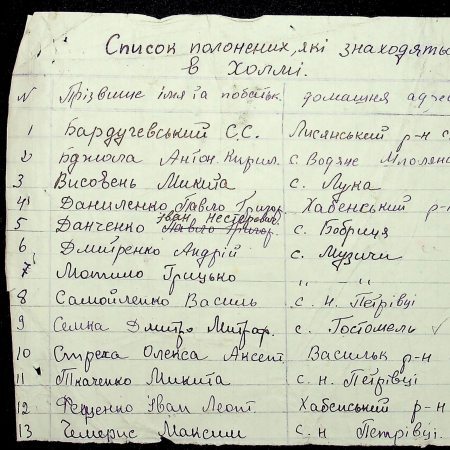 Список полонених, які знаходять
в Холмі.
N Прізвище імя та побатьк. домашня адре
1 Бардучевський С.С. Лисянський р-н с.
2 Бджола Антон Кирил. с. Водяне Шполян
3 Висовень Микита с. Лука
4 Даниленко Павло Григор. Хабенський р-н
Іван Нестерович
5 Данченко Павло Григор. с. Бобриця
6 Дмитренко Андрій с. Музичи
7 Мотило Грицько " "
8 Самойленко Василь с. Н. Петрівці
9 Семка Дмитро Митроф. с. Гостомель
10 Стреха Олекса Аксент. Васильк р-н
11 Ткаченко Микита с. Н. Петрівці
12 Фещенко Іван Леонт. Хабенський р-н
13 Чемерис Максим с. Н Петрівці.